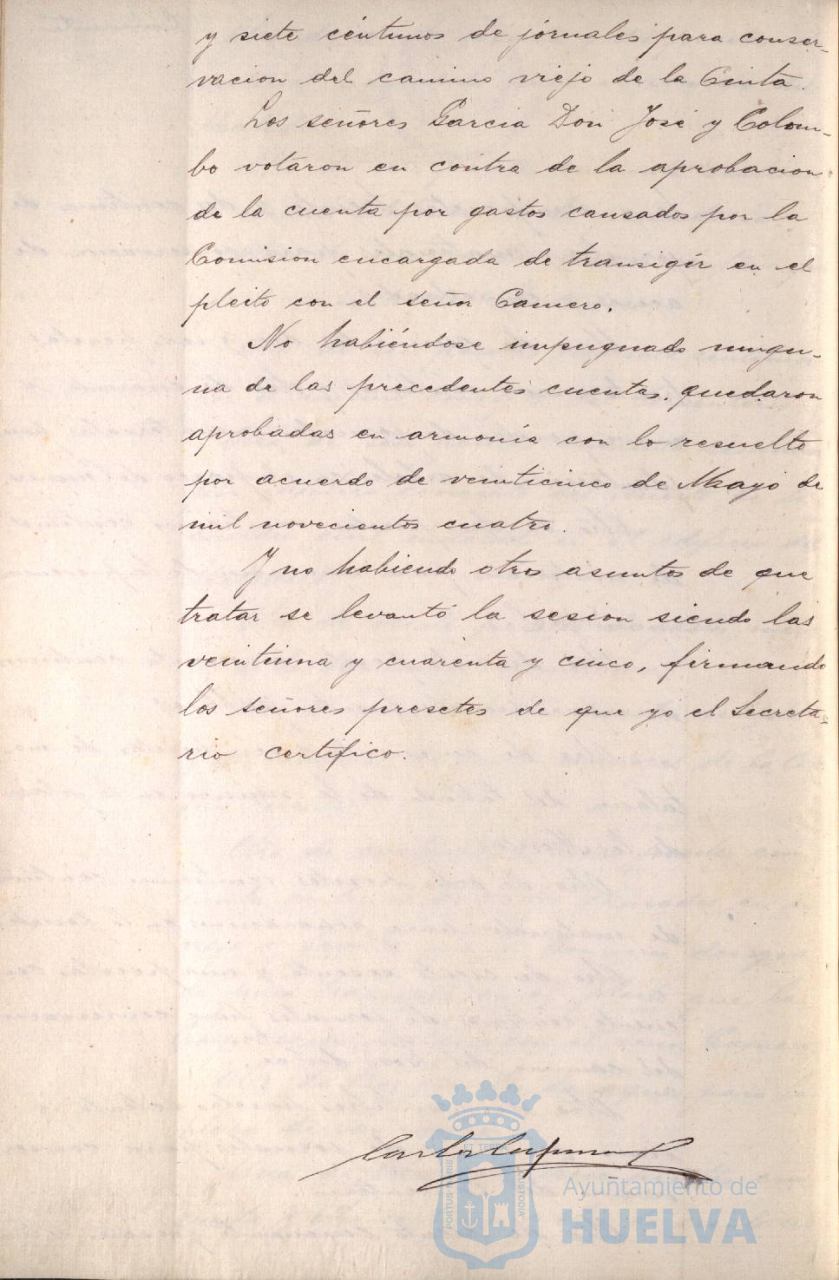 y siete céntimos de jórnales para conser-
vacion del camino viejo de la Cinta.
Los señores Garcia Don José y Colom-
bo votaron en contra de la aprobacion
de la cuenta por gastos causados por la
Comision encargada de transigir en el
pleito con el señor Camero.
No habiéndose impugnado ningu-
na de las precedentes cuentas, quedaron
aprobadas en armonía con lo resuelto
por acuerdo de veinticinco de Mayo de
mil novecientos cuatro.
Y no habiendo otros asuntos de que
tratar se levantó la sesion siendo las
veintiuna y cuarenta y cinco, firmando
los señores presetes de que yo el Secreta-
rio certifico.
Ayuntamiento de
HUELVA